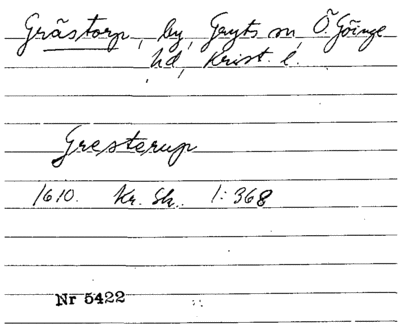 Gråstorp, by, Gryts sn, Ö. Göinge
hd, Krist. l.
Gresterup
1610. Kr. Sk. 1:368
Nr 5422